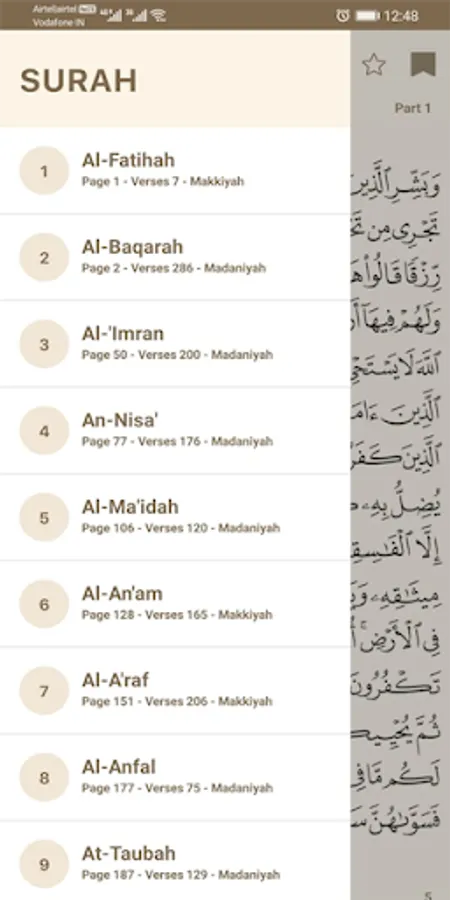 Airtelairtel
Vodafone IN
12:48
SURAH
Part 1
1
Al-Fatihah
Page 1 - Verses 7 - Makkiyah
2
Al-Baqarah
Page 2 - Verses 286 - Madaniyah
3
Al-'Imran
Page 50 - Verses 200 - Madaniyah
4
An-Nisa'
Page 77 - Verses 176 - Madaniyah
5
Al-Ma'idah
Page 106 - Verses 120 - Madaniyah
6
Al-An'am
Page 128 - Verses 165 - Makkiyah
7
Al-A'raf
Page 151 - Verses 206 - Makkiyah
8
Al-Anfal
Page 177 - Verses 75 - Madaniyah
9
At-Taubah
Page 187 - Verses 129 - Madaniyah
وَبَشِّرِ الَّذِينَ
تَجْرِى مِن
رِّزْقًا قَالُوا
وَلَهُمْ فِيهَا
اللَّهَ لَا يَسْتَحْىِ
الَّذِينَ ءَامَ
الَّذِينَ كَفَرُ
يُضِلُّ بِهِ
إِلَّا الْفَـٰسِقِ
مِيثَـٰقِهِ وَيَ
فِى الْأَرْضِ أُ
تَكْفُرُونَ
ثُمَّ يُحْيِيكُ
لَكُم مَّا فِى
فَسَوَّىٰهُنَّ سَ
5